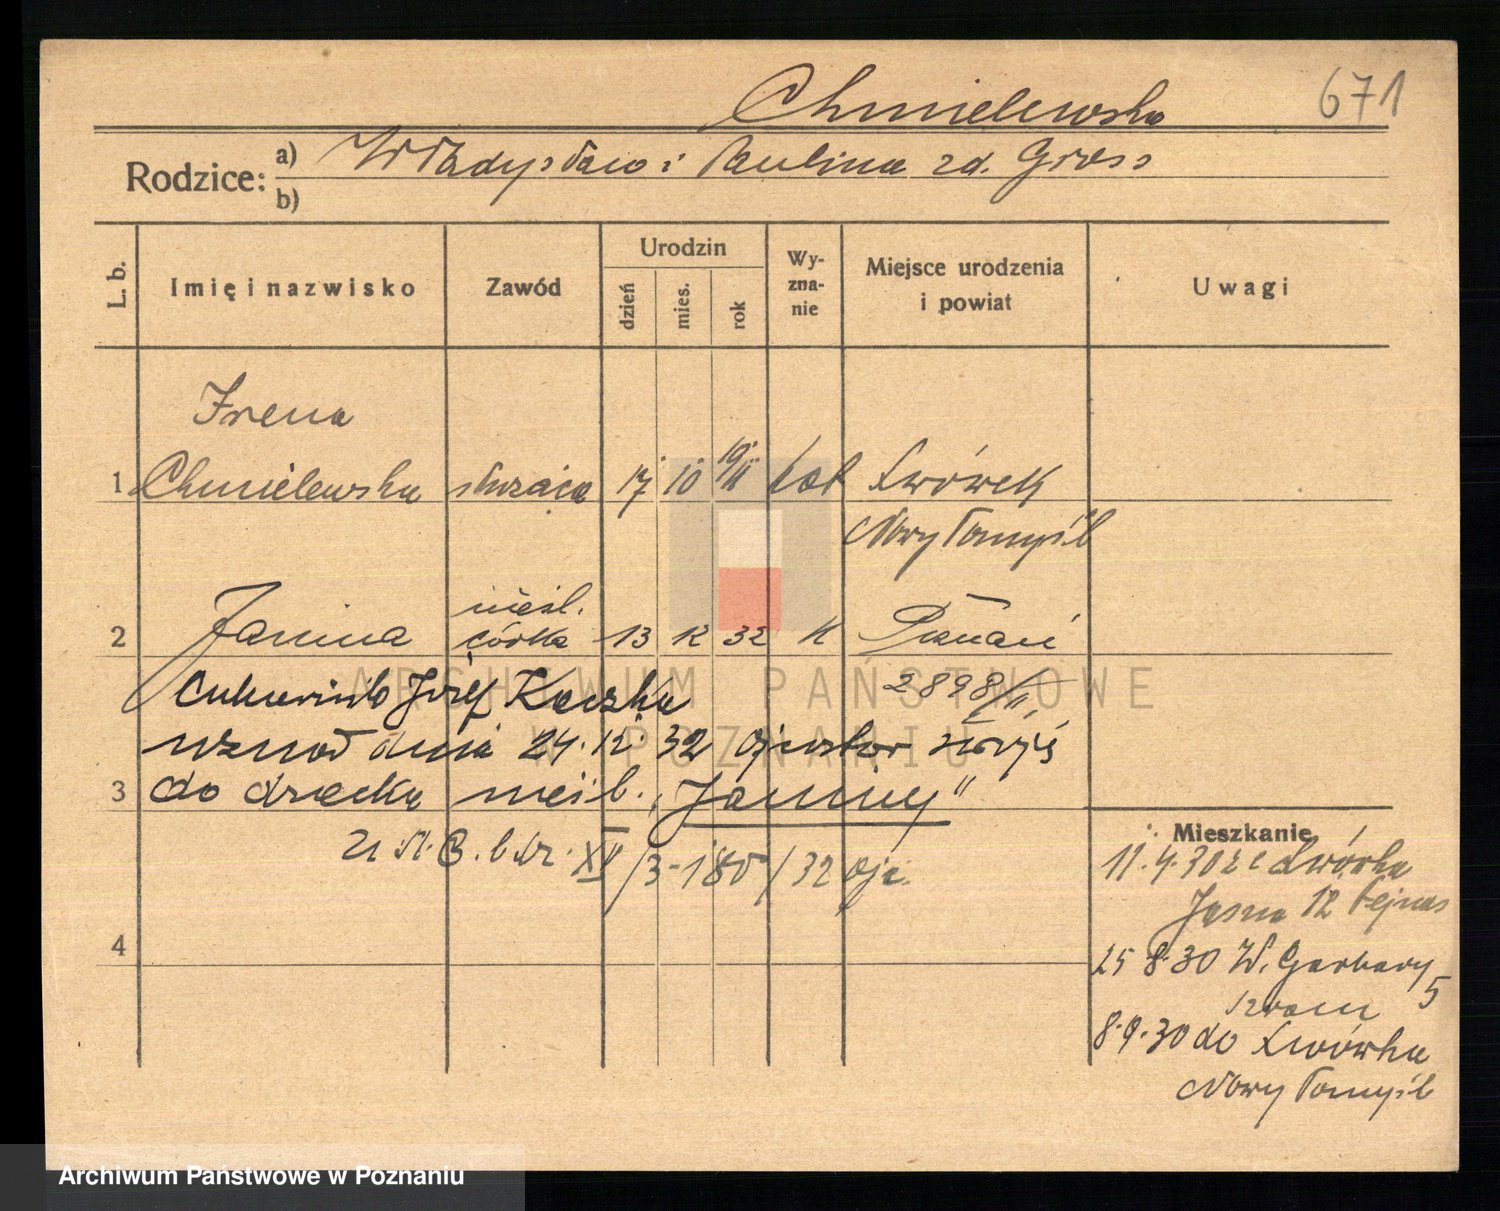 Chmielewska
671
Rodzice: a) Władysław i Paulina zd. Gross
b)
L. b.
Imię i nazwisko
Zawód
Urodzin
dzień
mies.
rok
Wy-
zna-
nie
Miejsce urodzenia
i powiat
Uwagi
Irena
1 Chmielewska służąca 17 10 1911 kat Lwówek
Nowy Tomyśl
nieśl.
2 Janina córka 13 12 32 k Poznań
Józef Kaczka 2898/II
uznał dnia 24.12.32 ojcostwo swoje
3 do dziecka nieśl. "Janiny"
/32
4
Mieszkanie
11.4.30 ze Lwówka
Jasna 12
25 8.30 W. Garbary
5
8.9.30 do Lwówka
Nowy Tomyśl
ARCHIWUM PAŃSTWOWE
W POZNANIU
Archiwum Państwowe w Poznaniu